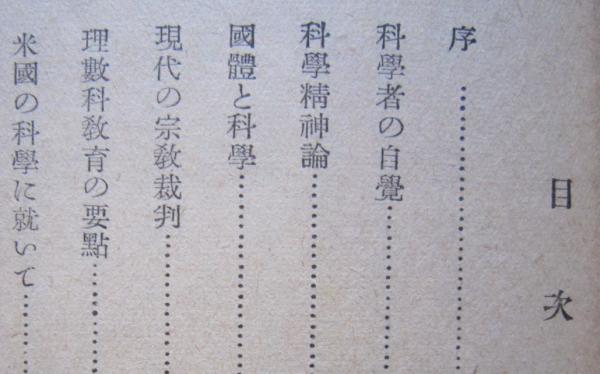 目次
序
科學者の自覺
科學精神論
國體と科學
現代の宗敎裁判
理數科敎育の要點
米國の科學に就いて